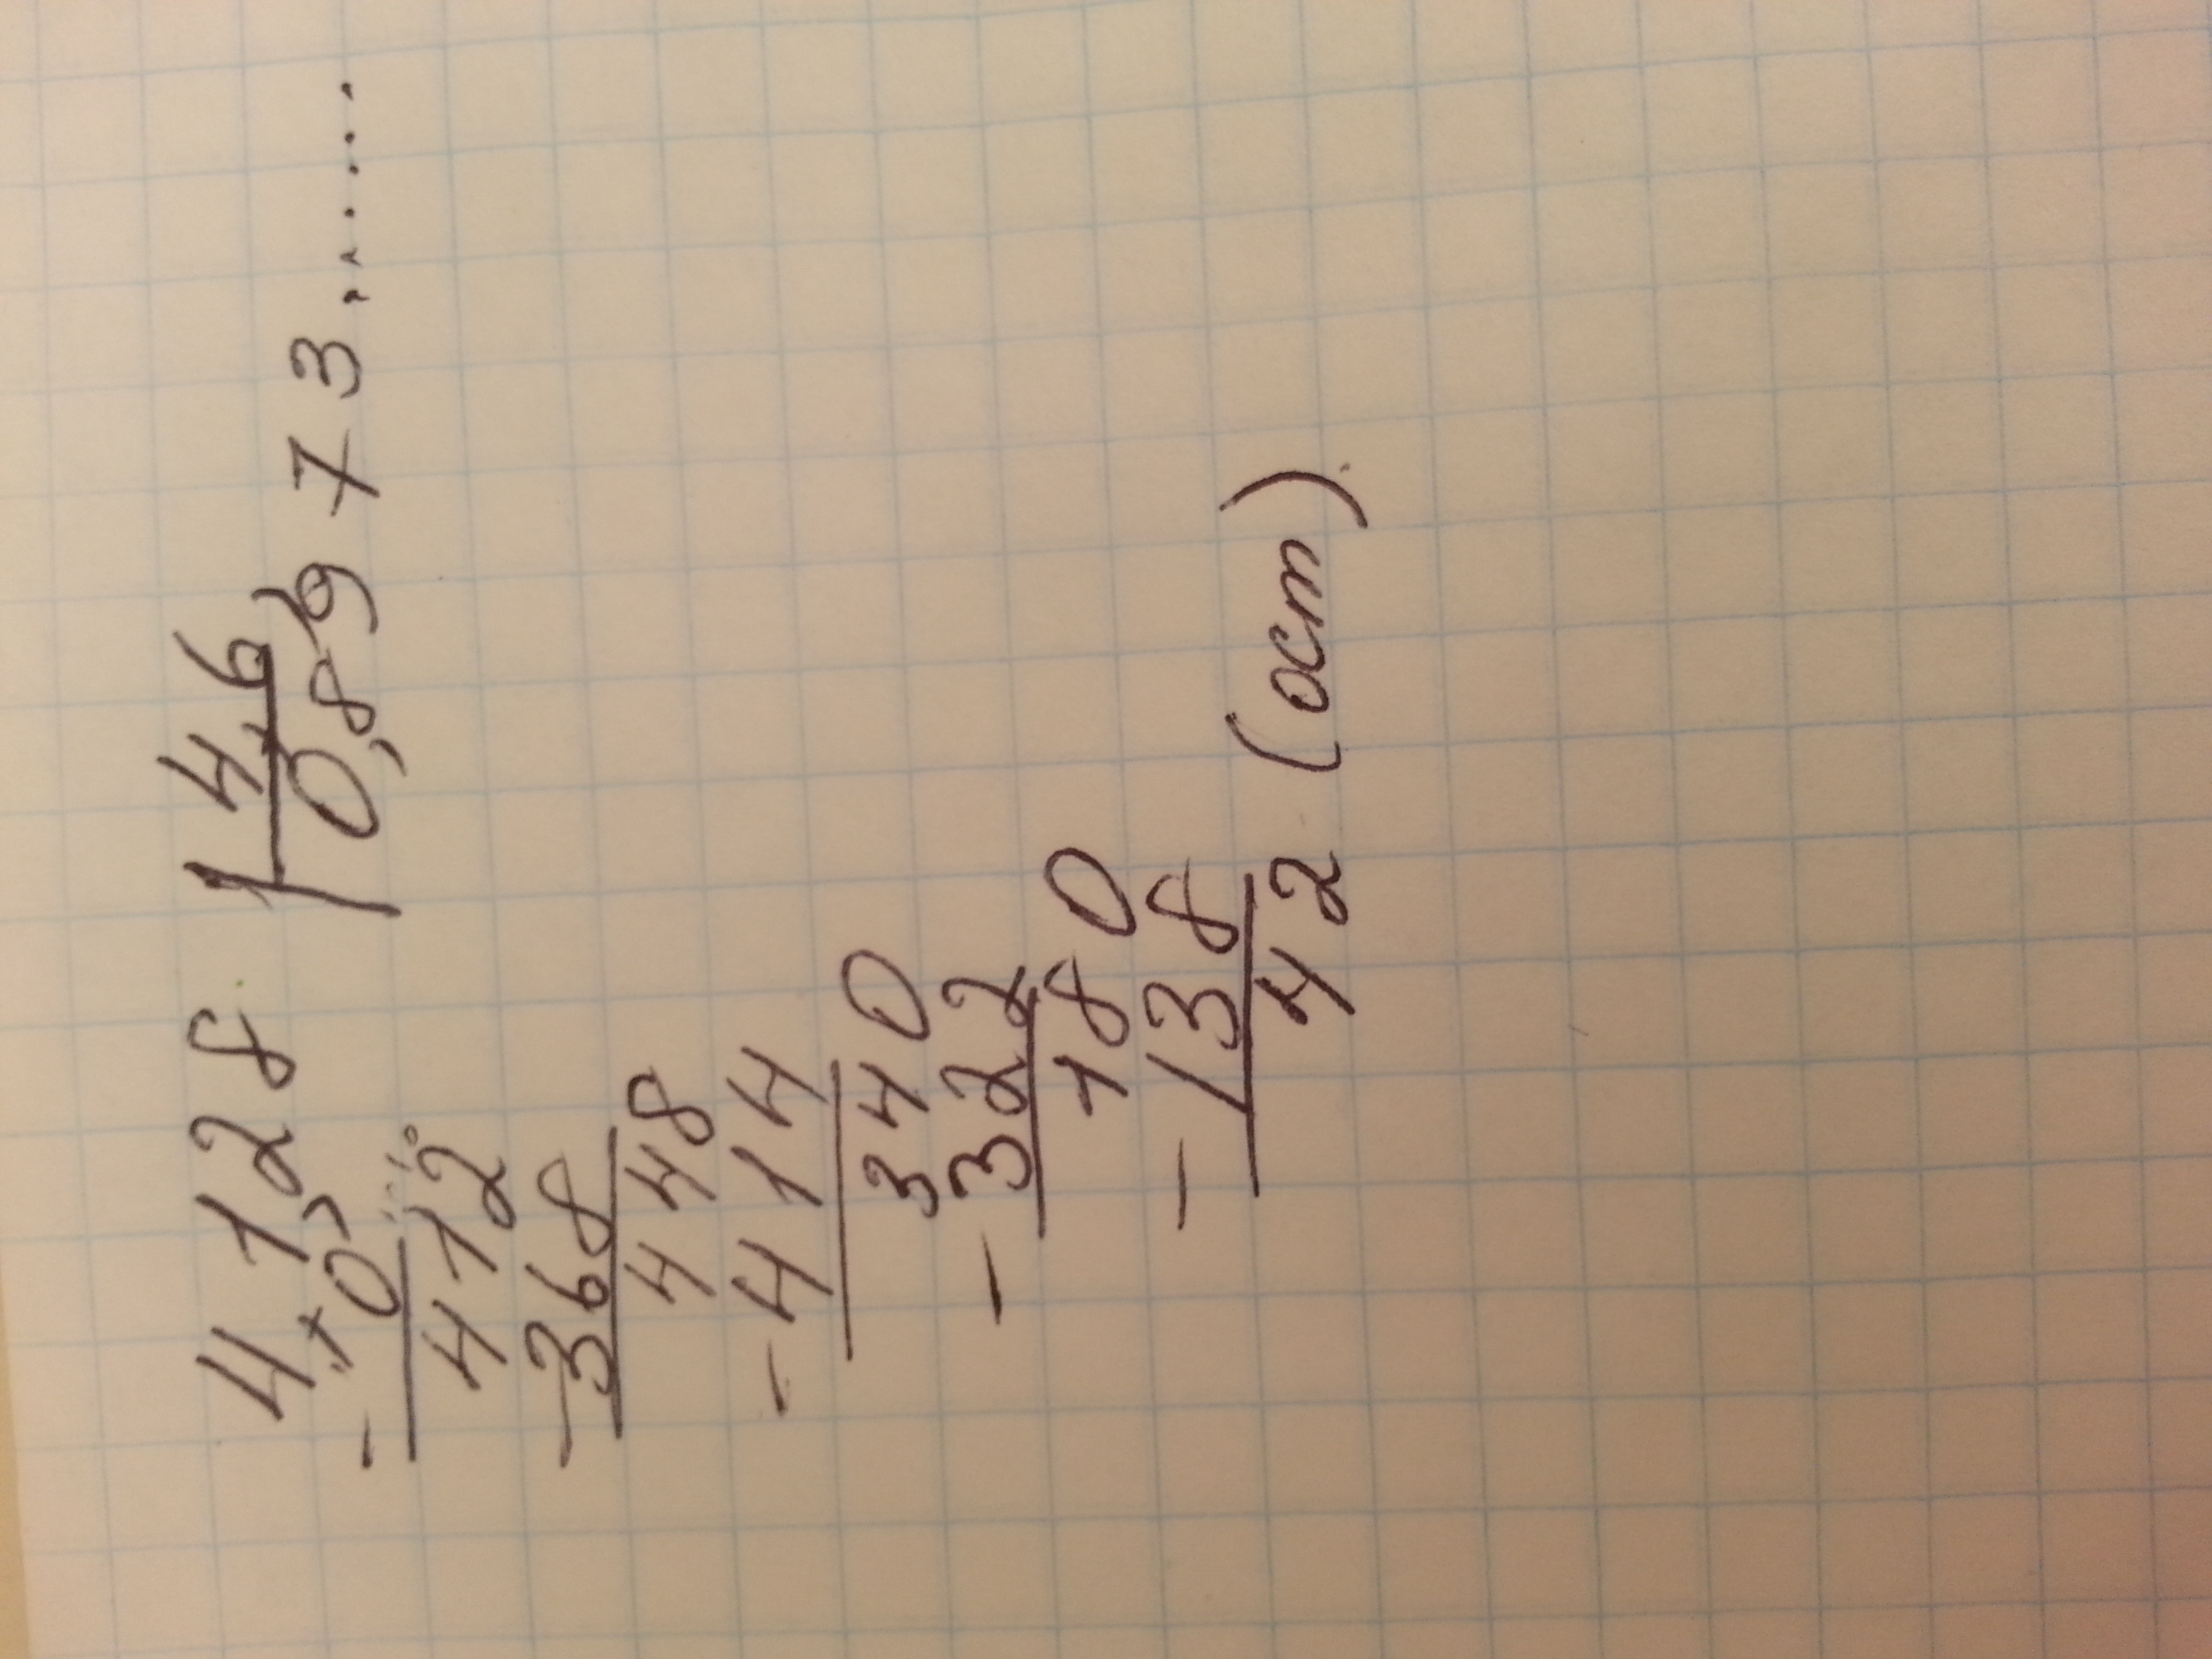 4,128 | 4,6
- 0, 0,8973.......
412
- 368
448
- 414
340
- 322
180
- 138
42 (ост).